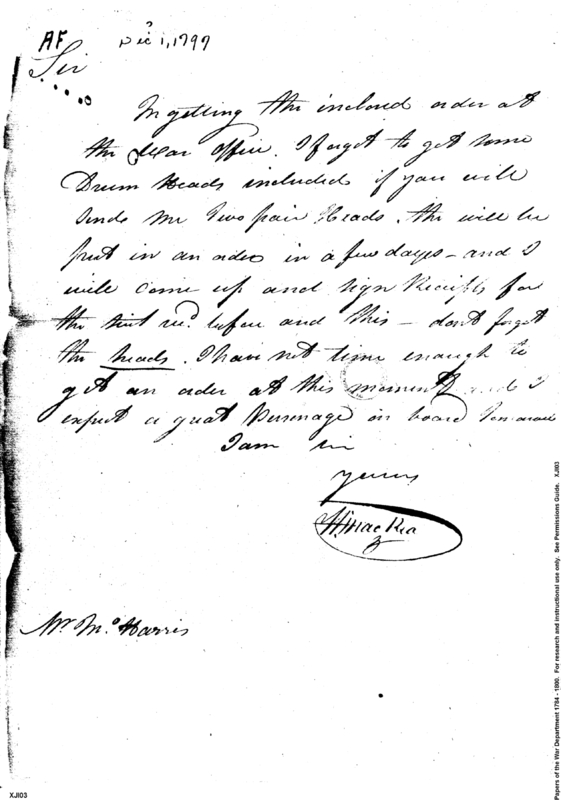 AF Dec 1, 1797
?
Sir
In getting the inclosed order at
the War office. I forgot to get some
Drum Heads included if you will
Send me Two pair Heads. the will be
put in an order in a few dayes - and I
will Come up and sign Receipts for
the tent &c. before and this - dont forget
the heads. I have not time enough to
get an order at this moment and I
expect a great Personage on board Tomorow
I am Sir
yours
Mr. Mo Harris
XJI03
Papers of the War Department 1784 - 1800. For research and instructional use only. See Permissions Guide. XJI03